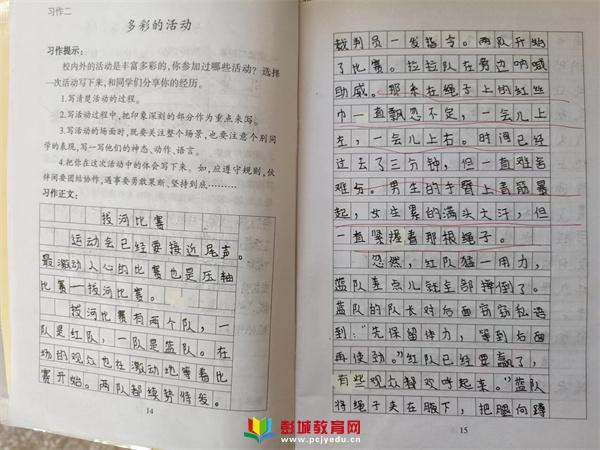 习作二
多彩的活动
习作提示:
校内外的活动是丰富多彩的,你参加过哪些活动?选择
一次活动写下来,和同学们分享你的经历。
1.写清楚活动的过程。
2.写活动过程中,把印象深刻的部分作为重点来写。
3.写活动的场面时,既要关注整个场景,也要注意个别同
学的表现,写一写他们的神态、动作、语言。
4.把你在这次活动中的体会写下来。如,应遵守规则,伙
伴间要团结协作,遇事要勇敢果断、坚持到底………
习作正文:
拔河比赛
运动会已经要接近尾声。
最激动人心的比赛也是压轴
比赛一拔河比赛。
拔河比赛有两个队,一
队是红队,一队是蓝队。在
场的观众也在激动地等着比
赛开始。两队都续势待发。
14
裁判员一发指令。两队开始
了比赛。拉拉队在旁边呐喊
助威。那系在绳子上的红丝
巾一直飘忽不定,一会儿上
左,一会儿上右。时间已经
过去了三分钟,但一直难舍
难分。男生的手臂上青筋暴
起,女生累的满头大汗,但
一直紧握着那根绳子。
忽然,红队猛一用力,
蓝队差点儿就全部摔倒了。
蓝队的队长对后面窃窃私语
到:“先保留体力,等到后面
再使劲。”红队已经要赢了,
有些观众都欢呼起来。”蓝队
将绳子夹在腋下,把腿向蹲
15
彭城教育网
www.pcjyedu.cn